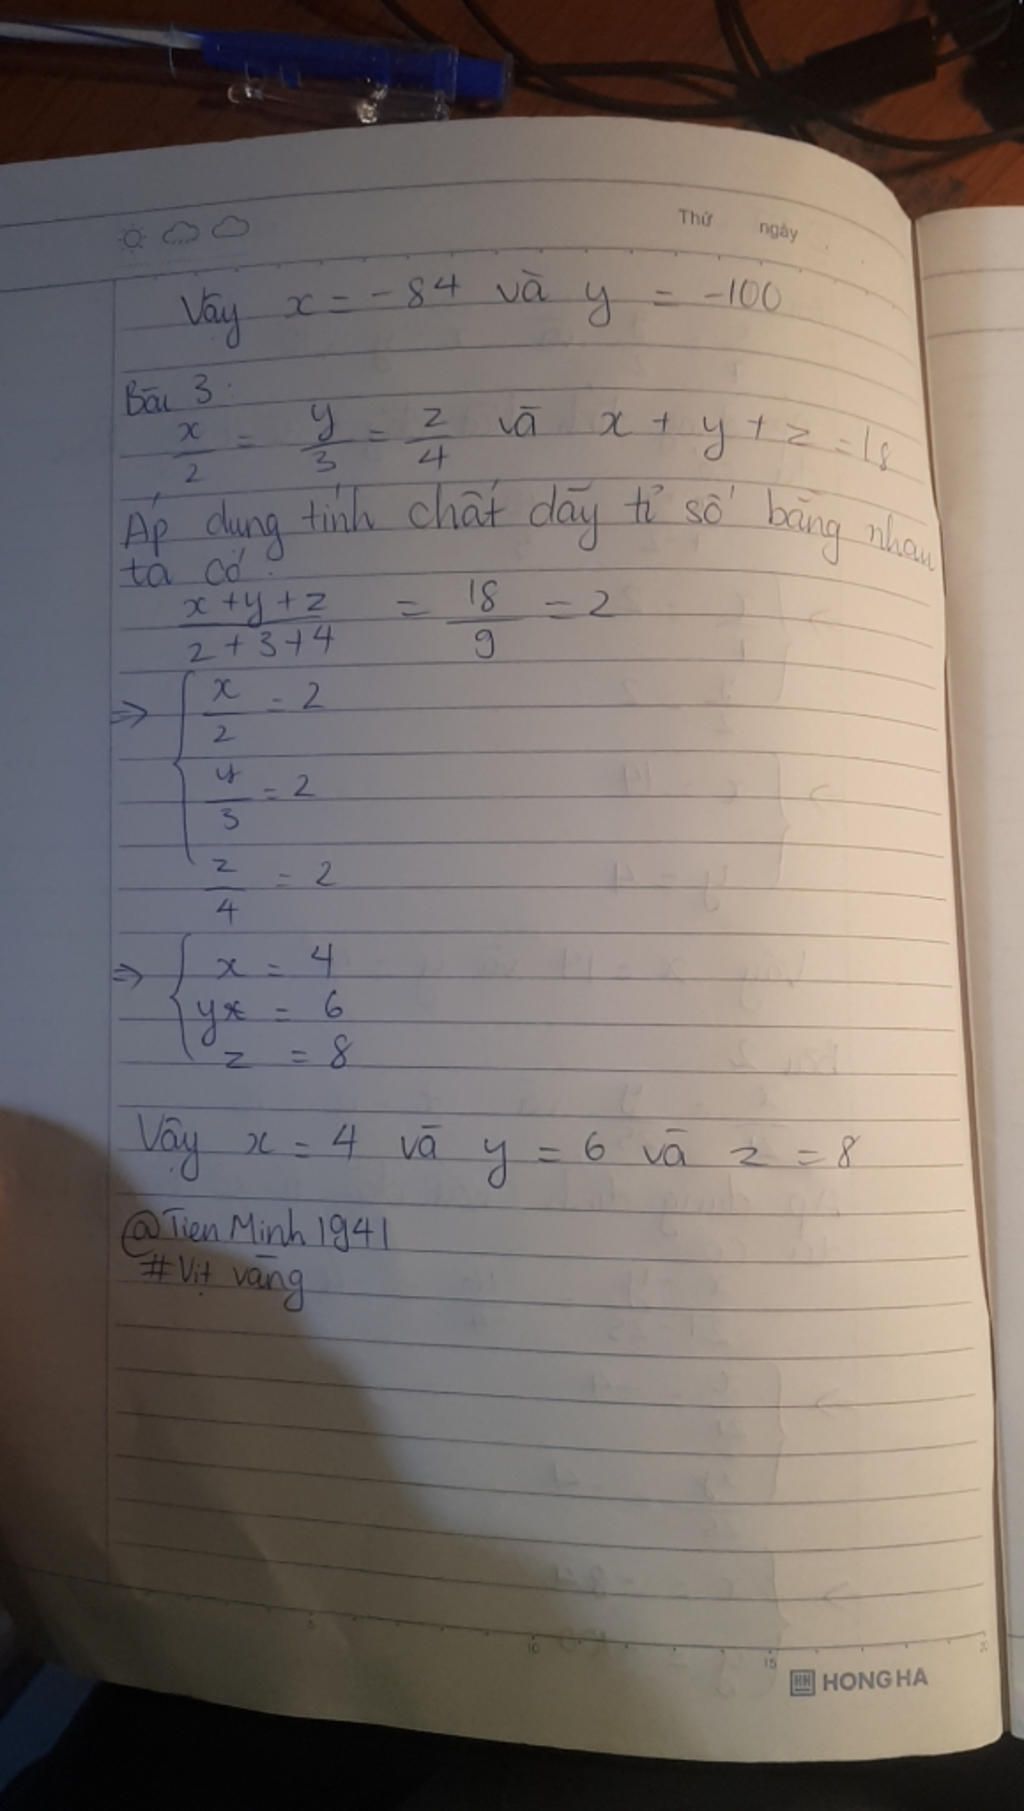 Thứ ngày
Vậy x = -84 và y = -100
Bài 3:
x/2 = y/3 = z/4 và x + y + z = 18
Áp dụng tính chất dãy tỉ số bằng nhau
ta có:
x+y+z/2+3+4 = 18/9 = 2
⇒ { x/2 = 2
y/3 = 2
z/4 = 2
⇒ { x = 4
y = 6
z = 8
Vậy x = 4 và y = 6 và z = 8
@Tien Minh 1941
#Vịt vàng
5 10 15 20
HH HONG HA